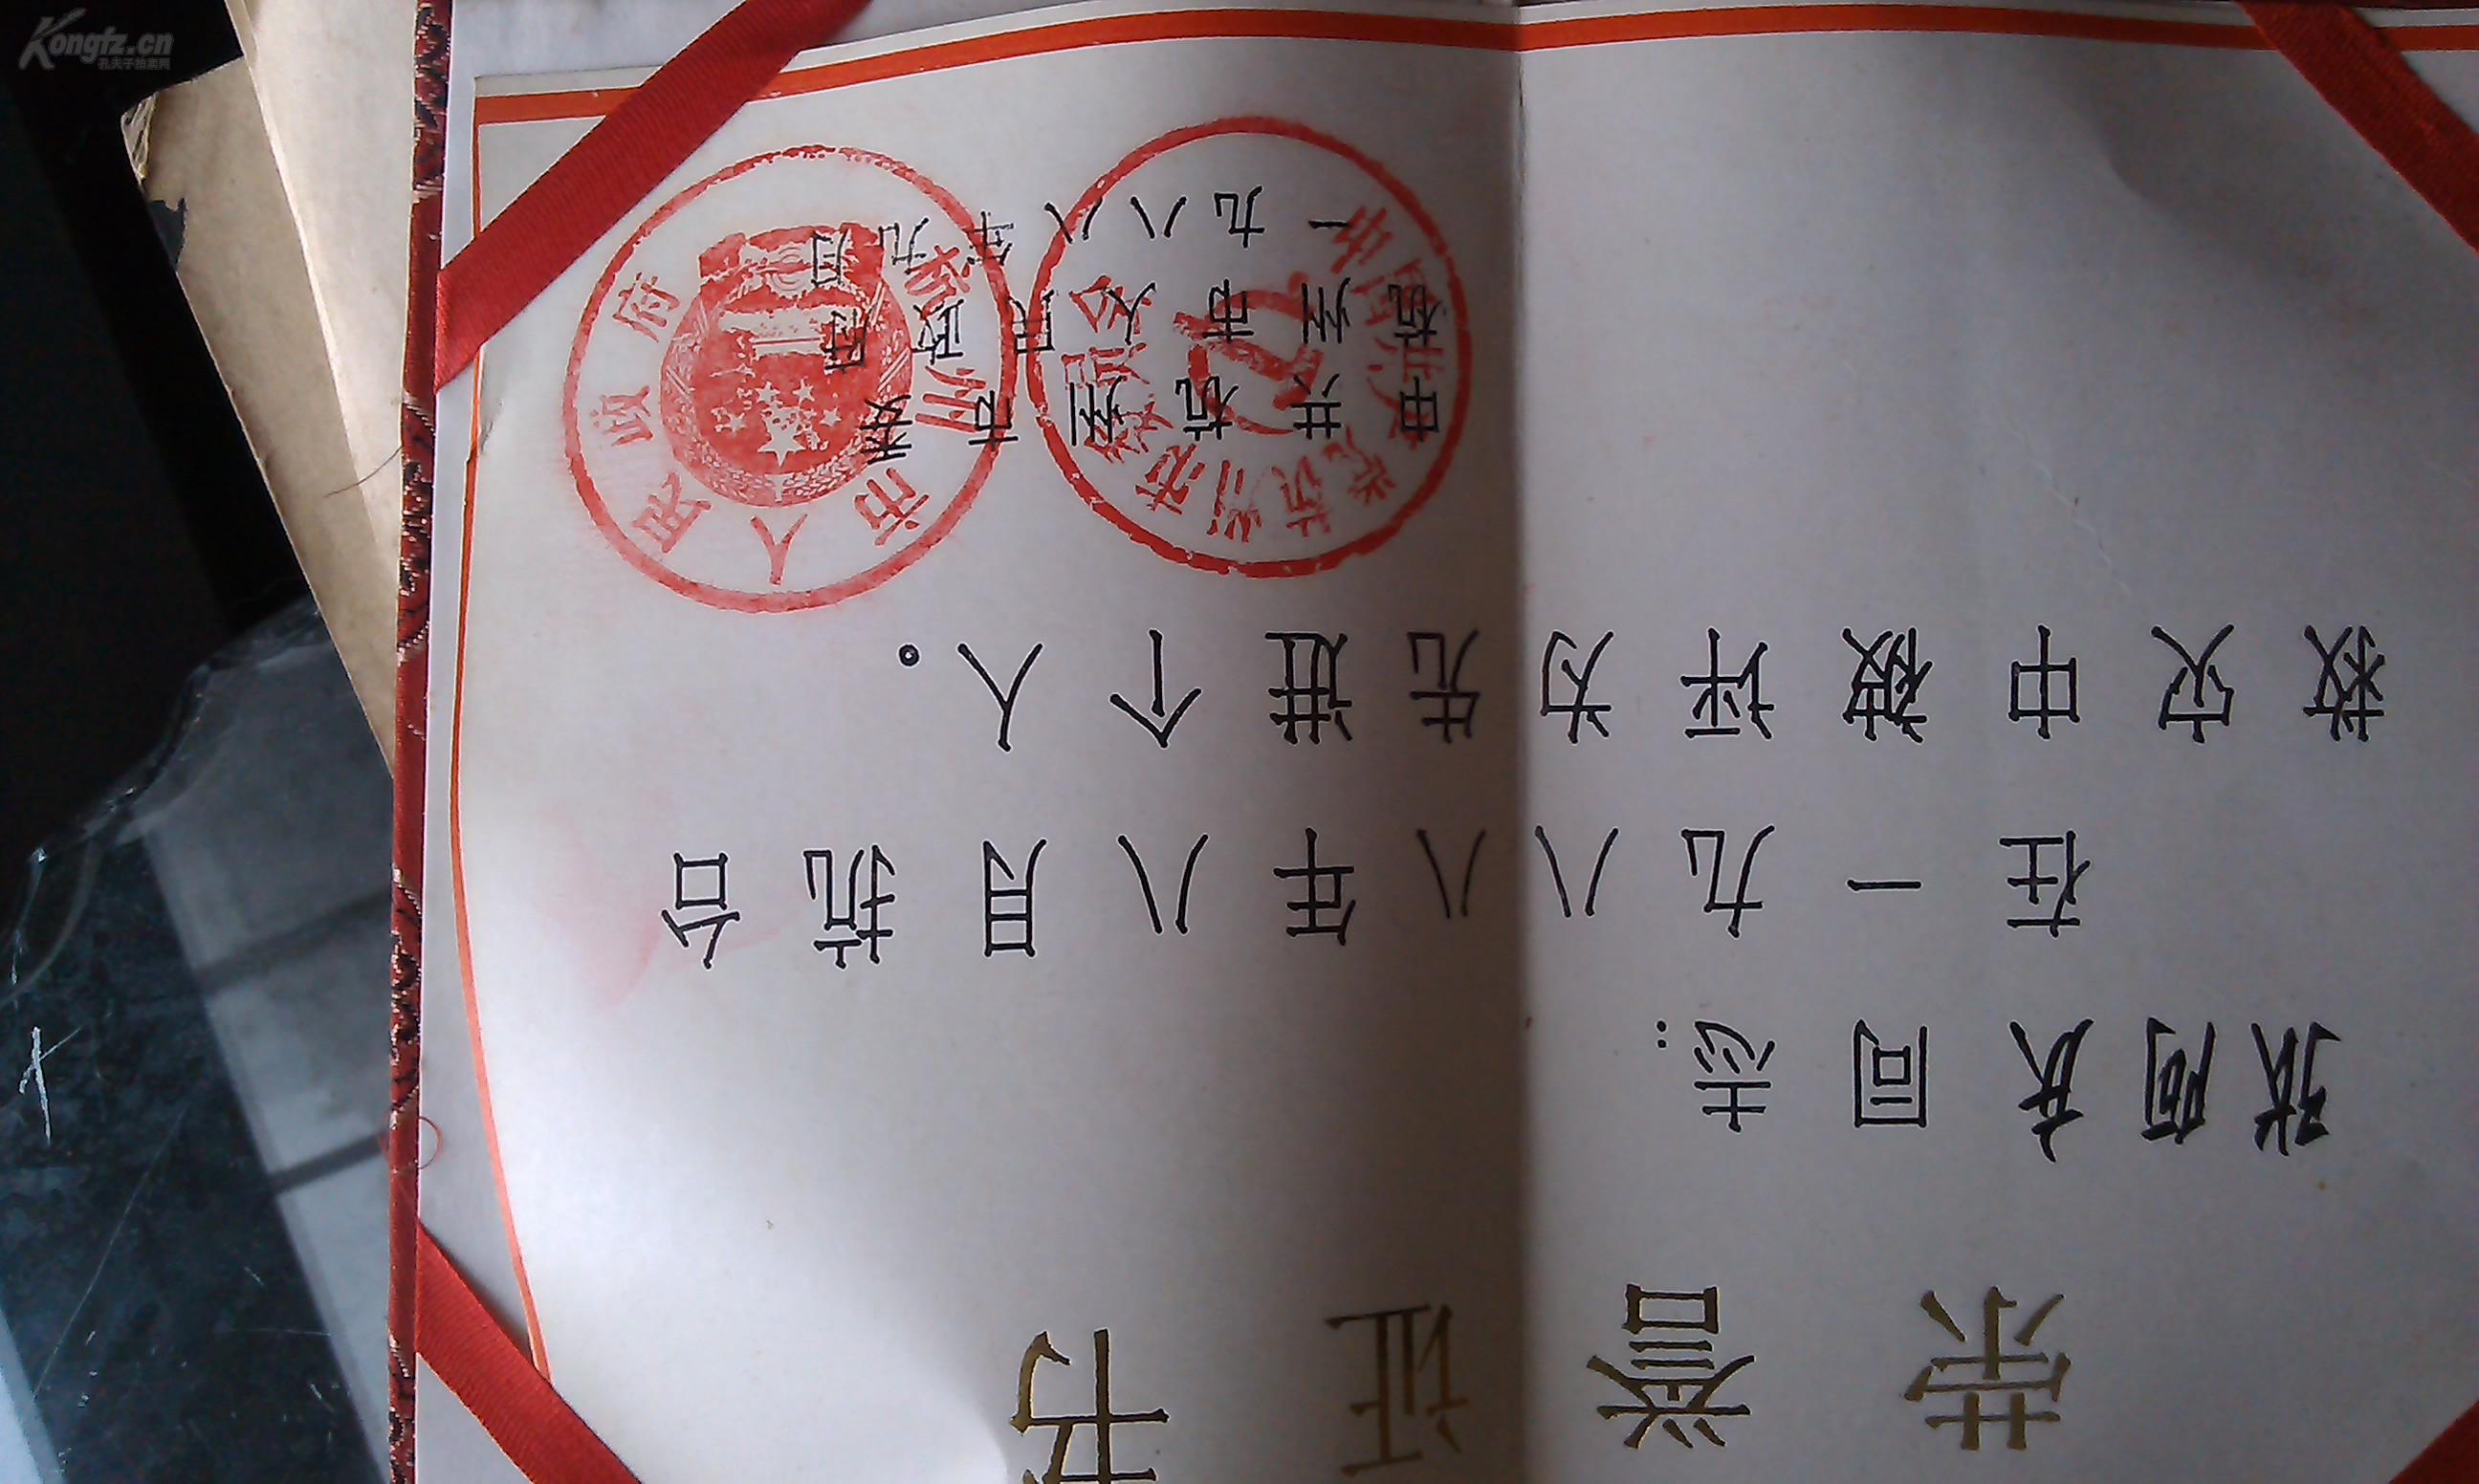 荣誉证书
张阿友同志:
在一九八八年八月抗台
救灾中被评为先进个人。
中共杭州市委
杭州市人民政府
一九八八年九月
中国共产党杭州市委员会
杭州市人民政府
Kongfz.cn
孔夫子拍卖网